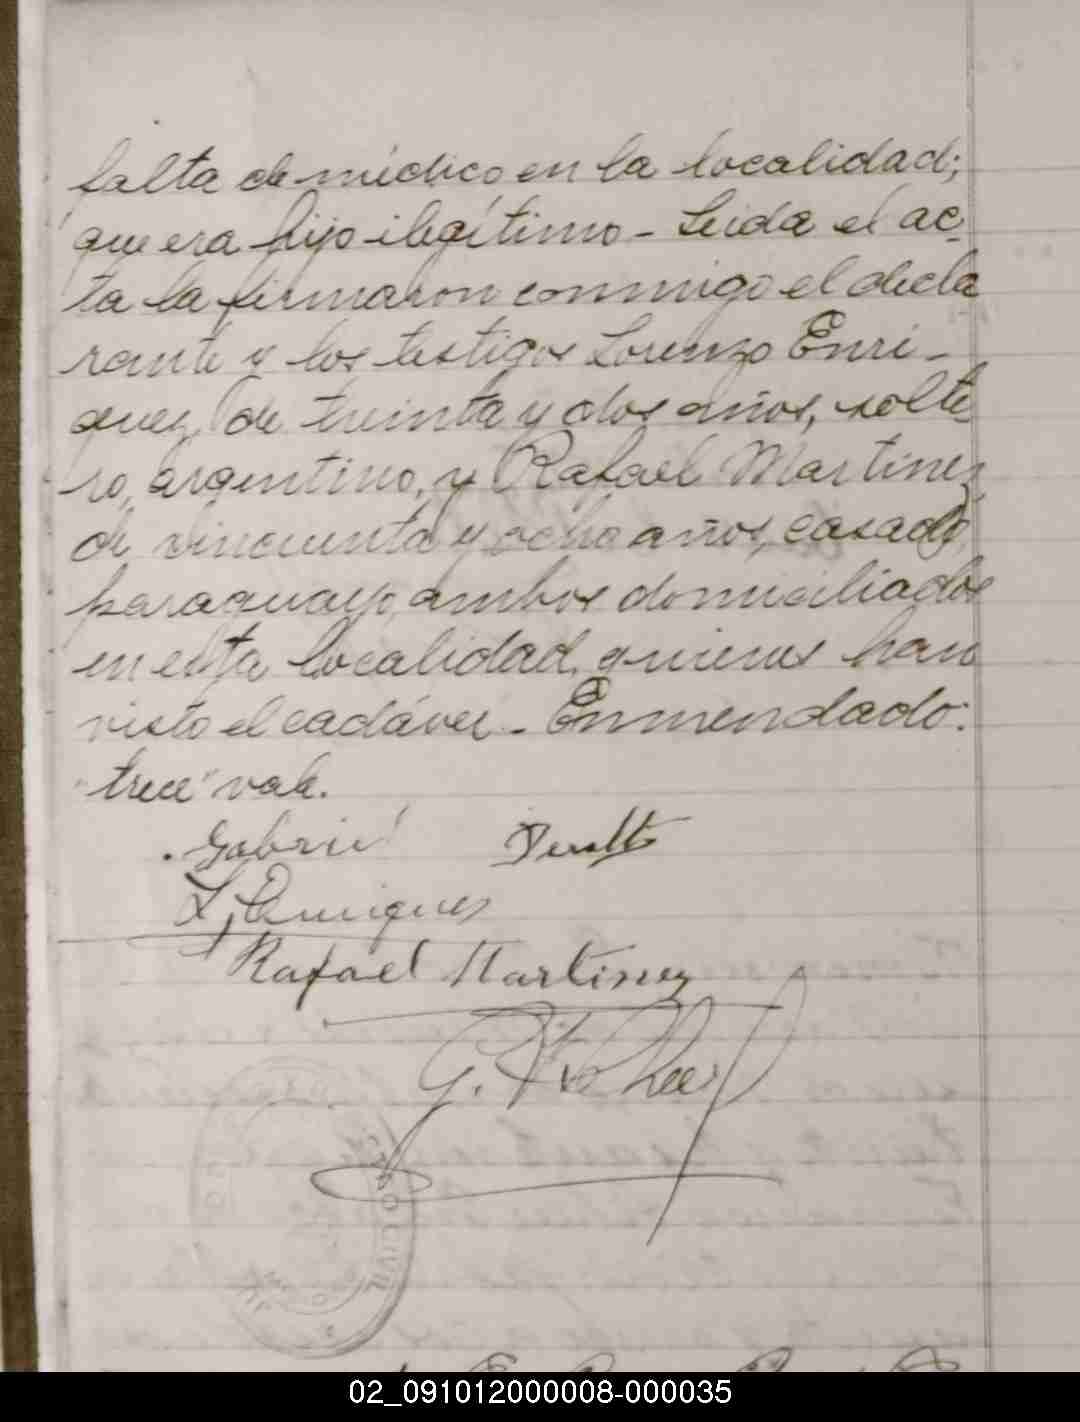 falta de médico en la localidad;
que era hijo ilegítimo - Leida el ac-
ta la firmaron conmigo el decla
rante y los testigos Lorenzo Enri-
quez, de treinta y dos años, solte
ro, argentino, y Rafael Martinez
de cincuenta y ocho años, casado,
paraguayo, ambos domiciliados
en esta localidad, quienes han
visto el cadáver - Enmendado:
"trece" vale.
Gabriel Peralta
L. Enriquez
Rafael Martinez
G.
CIVIL
02_091012000008-000035